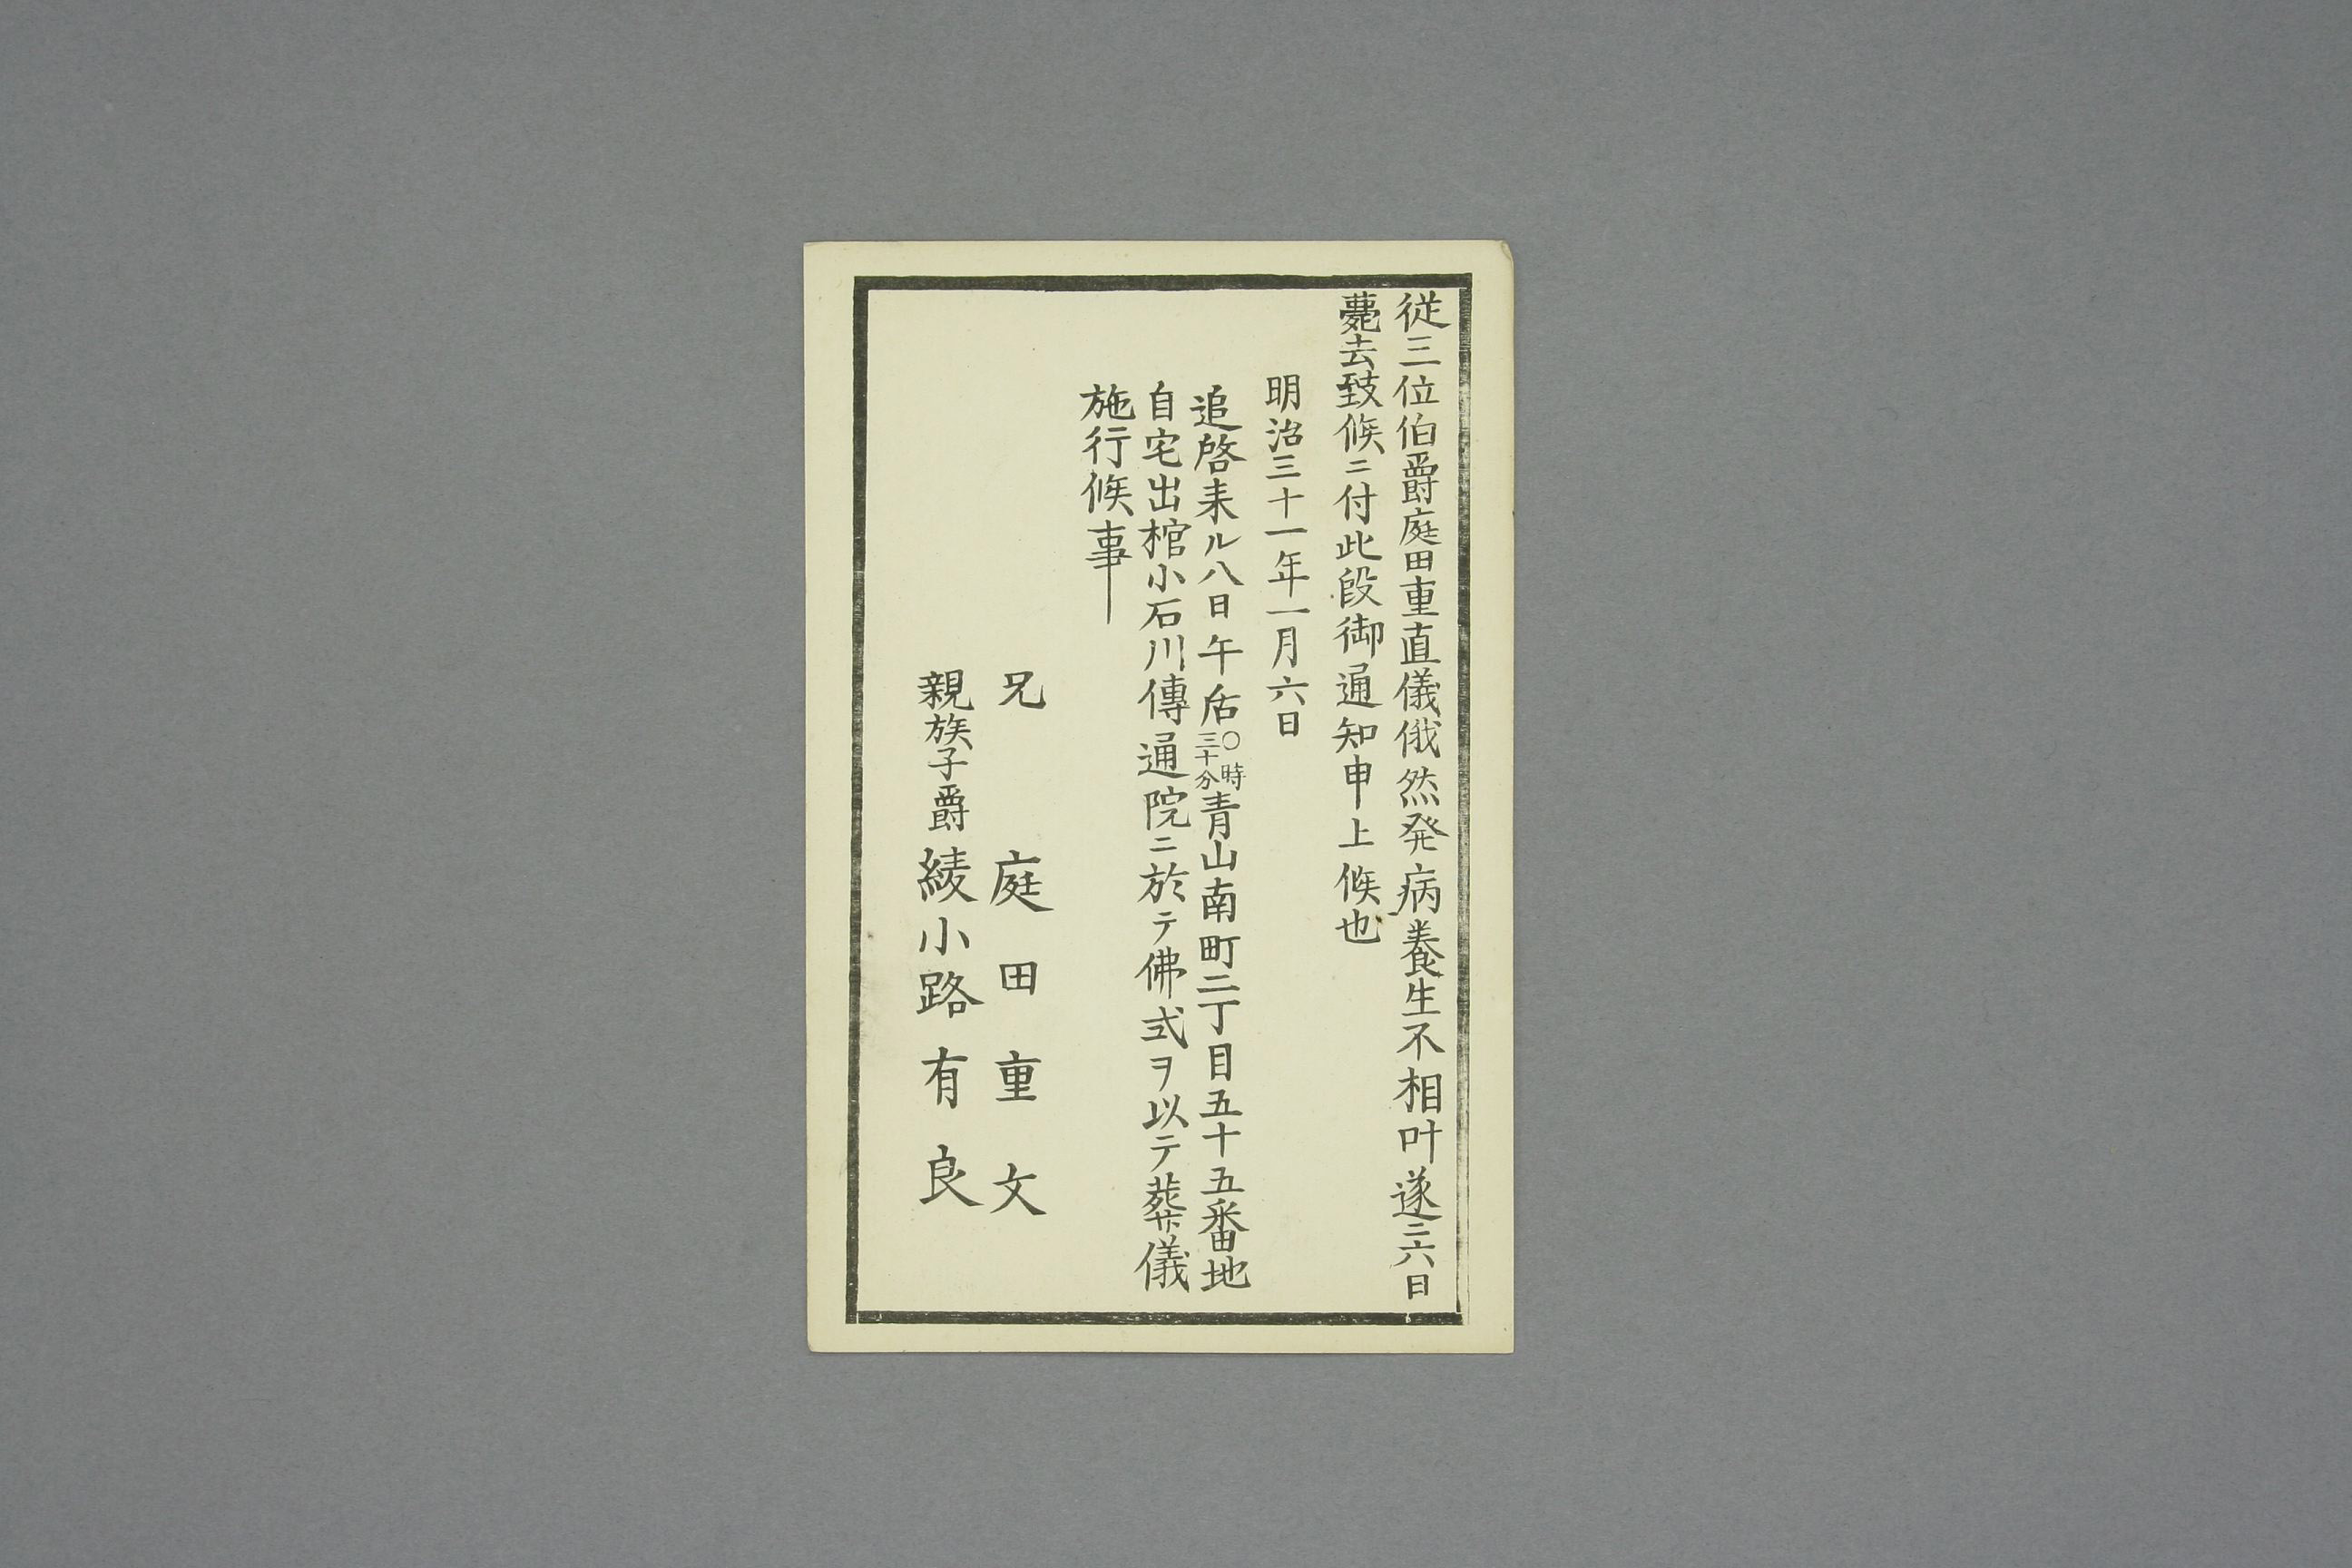 従三位伯爵庭田重直儀俄然発病養生不相叶遂ニ六日
薨去致候ニ付此段御通知申上候也
明治三十一年一月六日
追啓来ル八日午后〇時三十分青山南町二丁目五十五番地
自宅出棺小石川傳通院ニ於テ佛式ヲ以テ葬儀
施行候事
兄 庭田重文
親族子爵綾小路有良